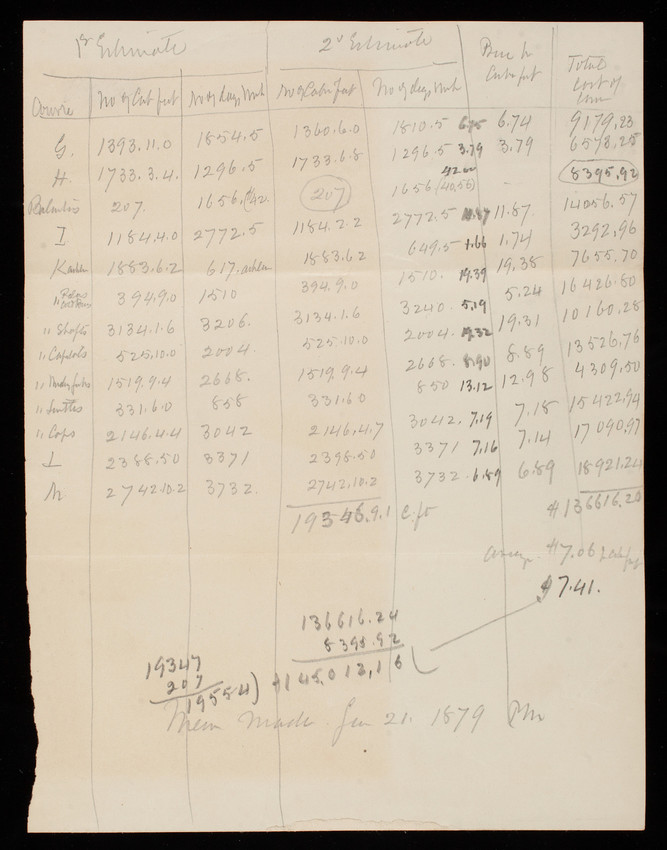 1st Estimate 2d Estimate Price pr Cube feet Total cost of
Course No of Cub feet No of days Work No of Cubic feet No of days Work
G. 1393.11.0 1854.5 1360.6.0 1810.5 6.75 6.74 9179,23
H. 1733.3.4. 1296.5 1733.6.8 1296.5 3.79 3.79 6578,25
Balusters 207. 1656. 207 1656 (40,56) 42.00 8395.92
I 1184.4.0 2772.5 1184.2.2 2772.5 11.87 11.87. 14056.57
1883.6.2 617. 1883.6.2 649.5 1.66 1.74 3292,96
" 394.9.0 1510 394.9.0 1510. 19.39 19.38 7655.70
" Shafts 3134.1.6 3206. 3134.1.6 3240. 5.19 5.24 16426.80
" Capitols 525.10.0 2004. 525.10.0 2004. 19.32 19.31 10160.28
" 1519.9.4 2668. 1519.9.4 2668. 8.90 8.89 13526,76
" Lintles 331.6.0 858 331.6.0 850 13.12 12.98 4309,50
" Caps 2146.4.4 3042 2146.4.7 3042. 7.19 7.18 15422,94
L 2388.5.0 3371 2398.5.0 3371 7.16 7.14 17090,97
M 2742.10.2 3732. 2742.10.2 3732. 6.89 6.89 18921.24
19346.9.1 c.ft $136616.20
average. $7.06
$7.41.
136616.24
8395.92
19347
207
19554) $145,013,16
Mem Made Jan 21. 1879